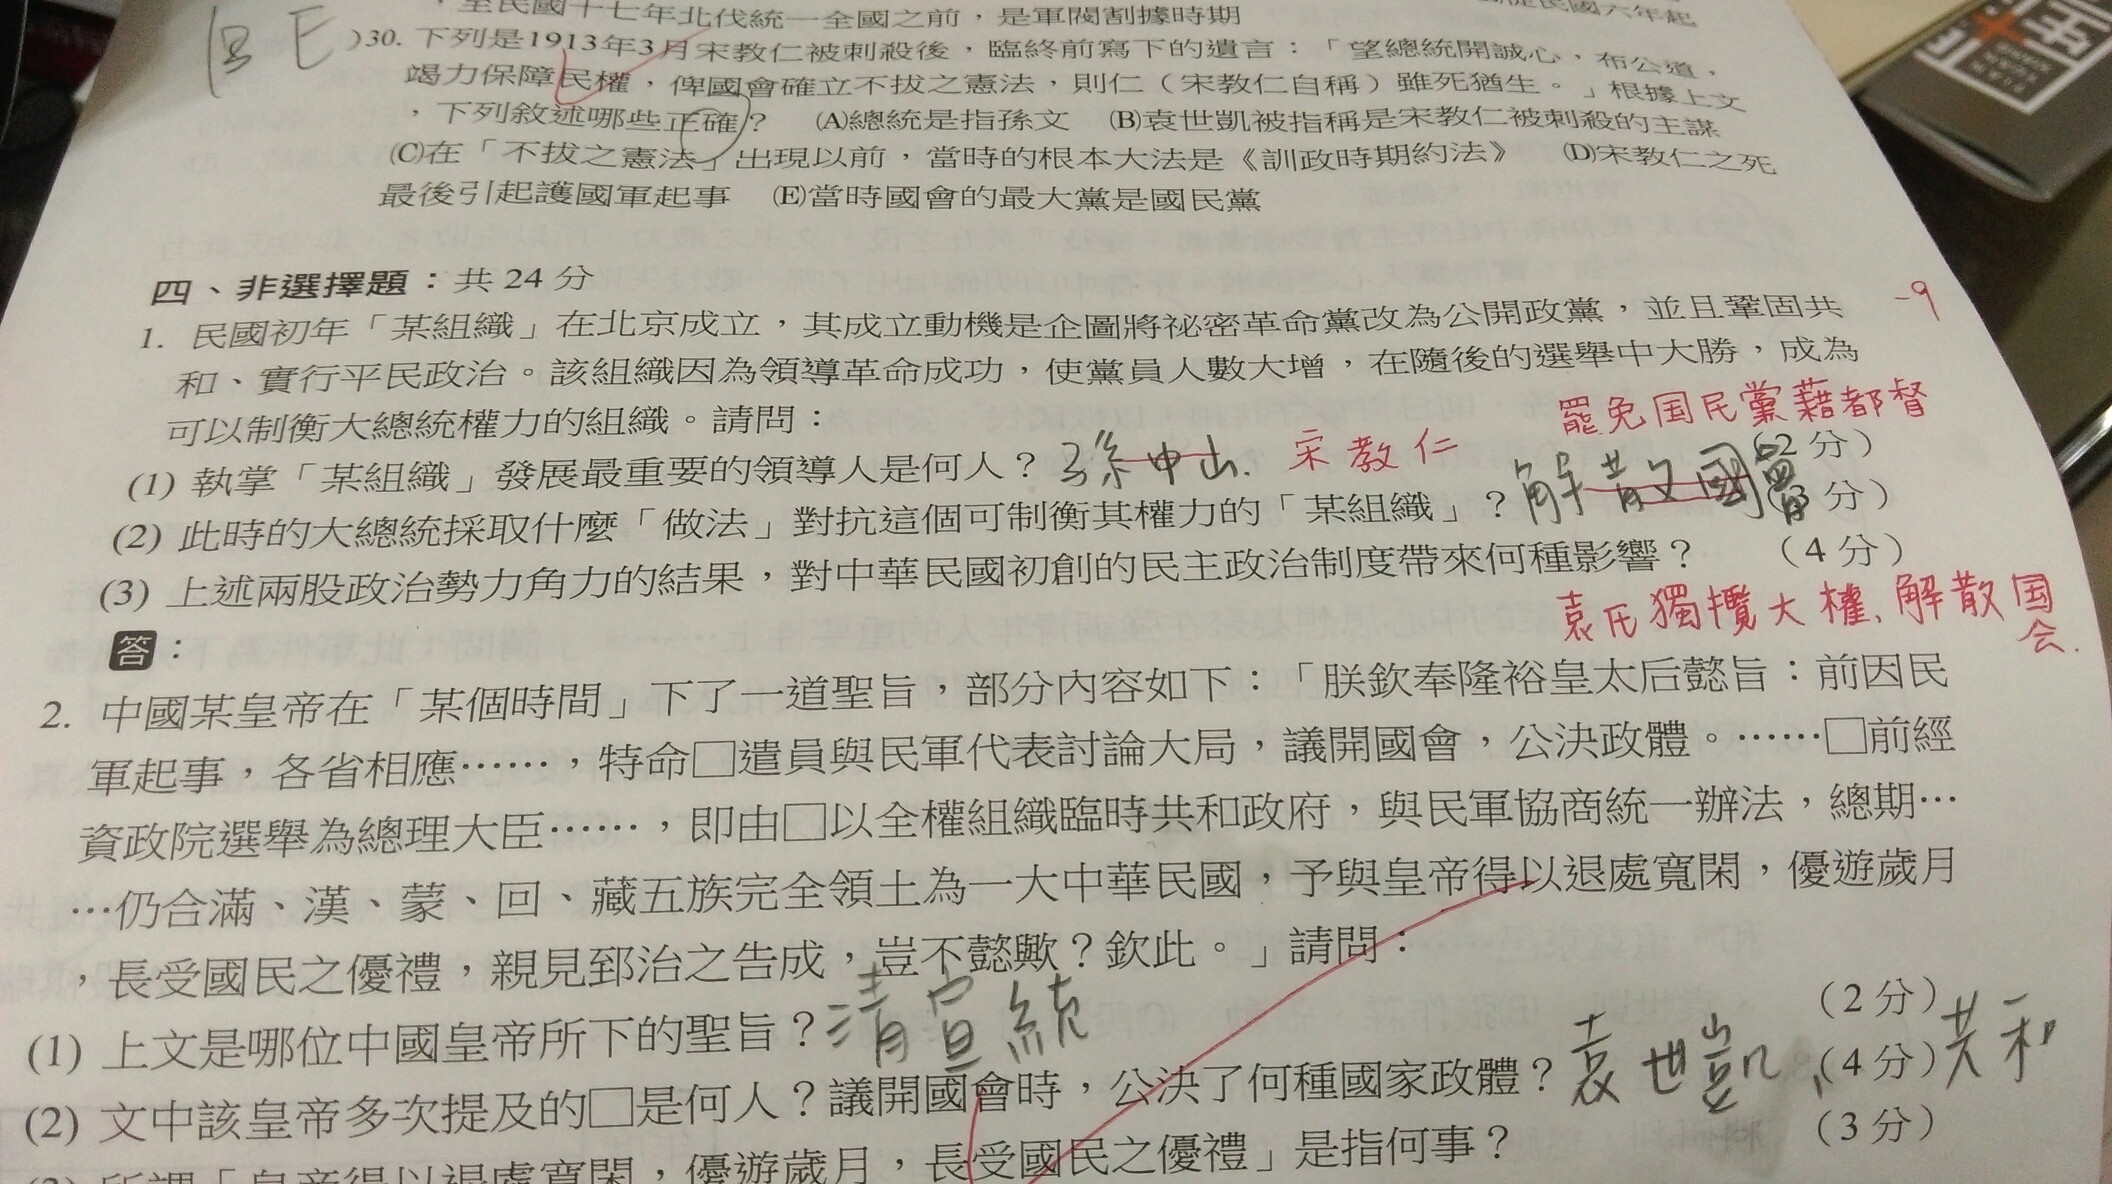 ，至民國十七年北伐統一全國之前，是軍閥割據時期
民國六年起
BE )30. 下列是1913年3月宋教仁被刺殺後，臨終前寫下的遺言：「望總統開誠心，布公道，
竭力保障民權，俾國會確立不拔之憲法，則仁（宋教仁自稱）雖死猶生。」根據上文
，下列敘述哪些正確？ (A)總統是指孫文 (B)袁世凱被指稱是宋教仁被刺殺的主謀
(C)在「不拔之憲法」出現以前，當時的根本大法是《訓政時期約法》 (D)宋教仁之死
最後引起護國軍起事 (E)當時國會的最大黨是國民黨
四、非選擇題：共 24 分
-9
1. 民國初年「某組織」在北京成立，其成立動機是企圖將祕密革命黨改為公開政黨，並且鞏固共
和、實行平民政治。該組織因為領導革命成功，使黨員人數大增，在隨後的選舉中大勝，成為
可以制衡大總統權力的組織。請問：
罷免国民黨藉都督
(1) 執掌「某組織」發展最重要的領導人是何人？ 孫中山. 宋教仁 （2 分）
(2) 此時的大總統採取什麼「做法」對抗這個可制衡其權力的「某組織」？ 解散國會 （3 分）
(3) 上述兩股政治勢力角力的結果，對中華民國初創的民主政治制度帶來何種影響？ （4 分）
袁氏獨攬大權、解散国会.
答：
2. 中國某皇帝在「某個時間」下了一道聖旨，部分內容如下：「朕欽奉隆裕皇太后懿旨：前因民
軍起事，各省相應……，特命□遣員與民軍代表討論大局，議開國會，公決政體。……□前經
資政院選舉為總理大臣……，即由□以全權組織臨時共和政府，與民軍協商統一辦法，總期…
…仍合滿、漢、蒙、回、藏五族完全領土為一大中華民國，予與皇帝得以退處寬閑，優遊歲月
，長受國民之優禮，親見郅治之告成，豈不懿歟？欽此。」請問：
(1) 上文是哪位中國皇帝所下的聖旨？ 清宣統 （2 分）
(2) 文中該皇帝多次提及的□是何人？議開國會時，公決了何種國家政體？ 袁世凱、共和 （4 分）
(3) 所謂「皇帝得以退處寬閑，優遊歲月，長受國民之優禮」是指何事？ （3 分）